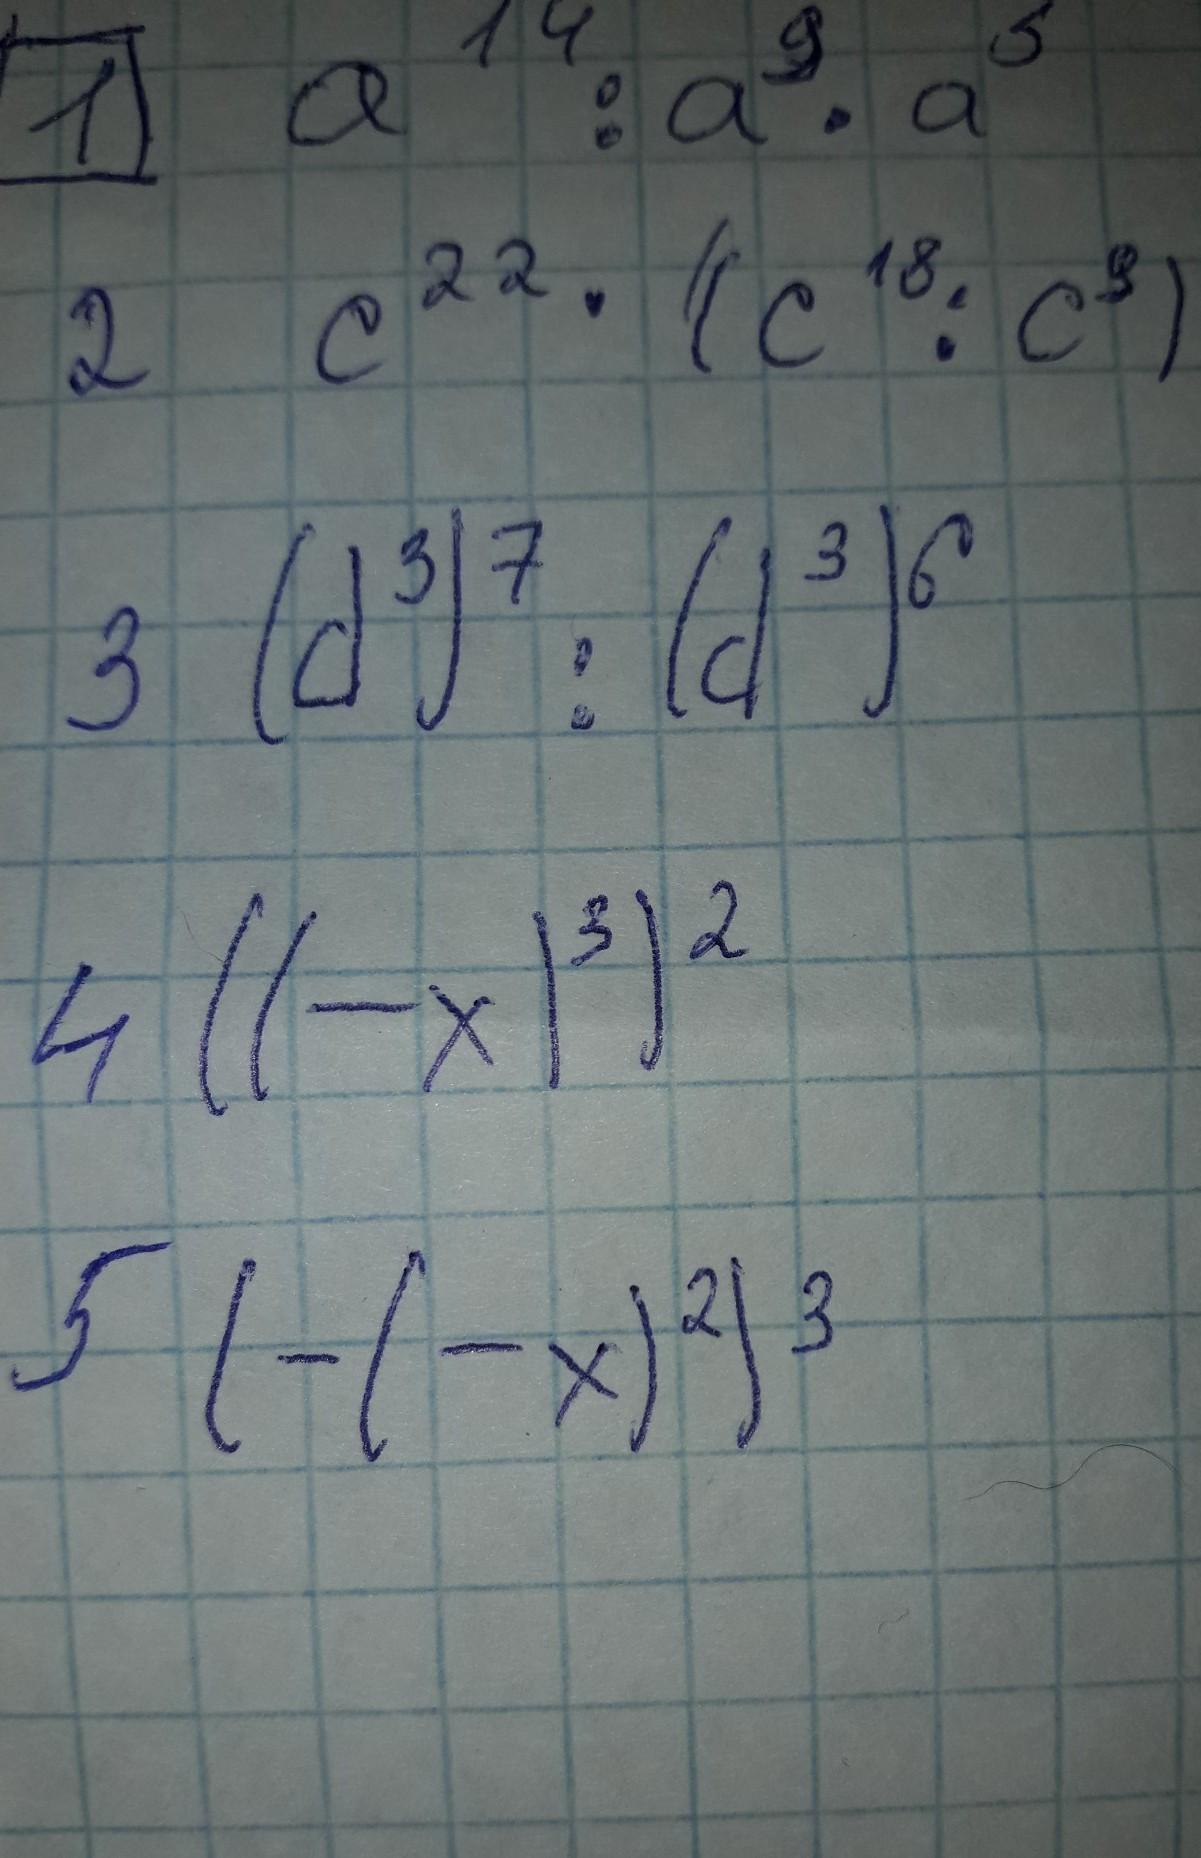 1 a¹⁴ : a⁹ · a⁵
2 c²² · (c¹⁸ : c⁹)
3 (d³)⁷ : (d³)⁶
4 ((-x)³)²
5 (-(-x)²)³